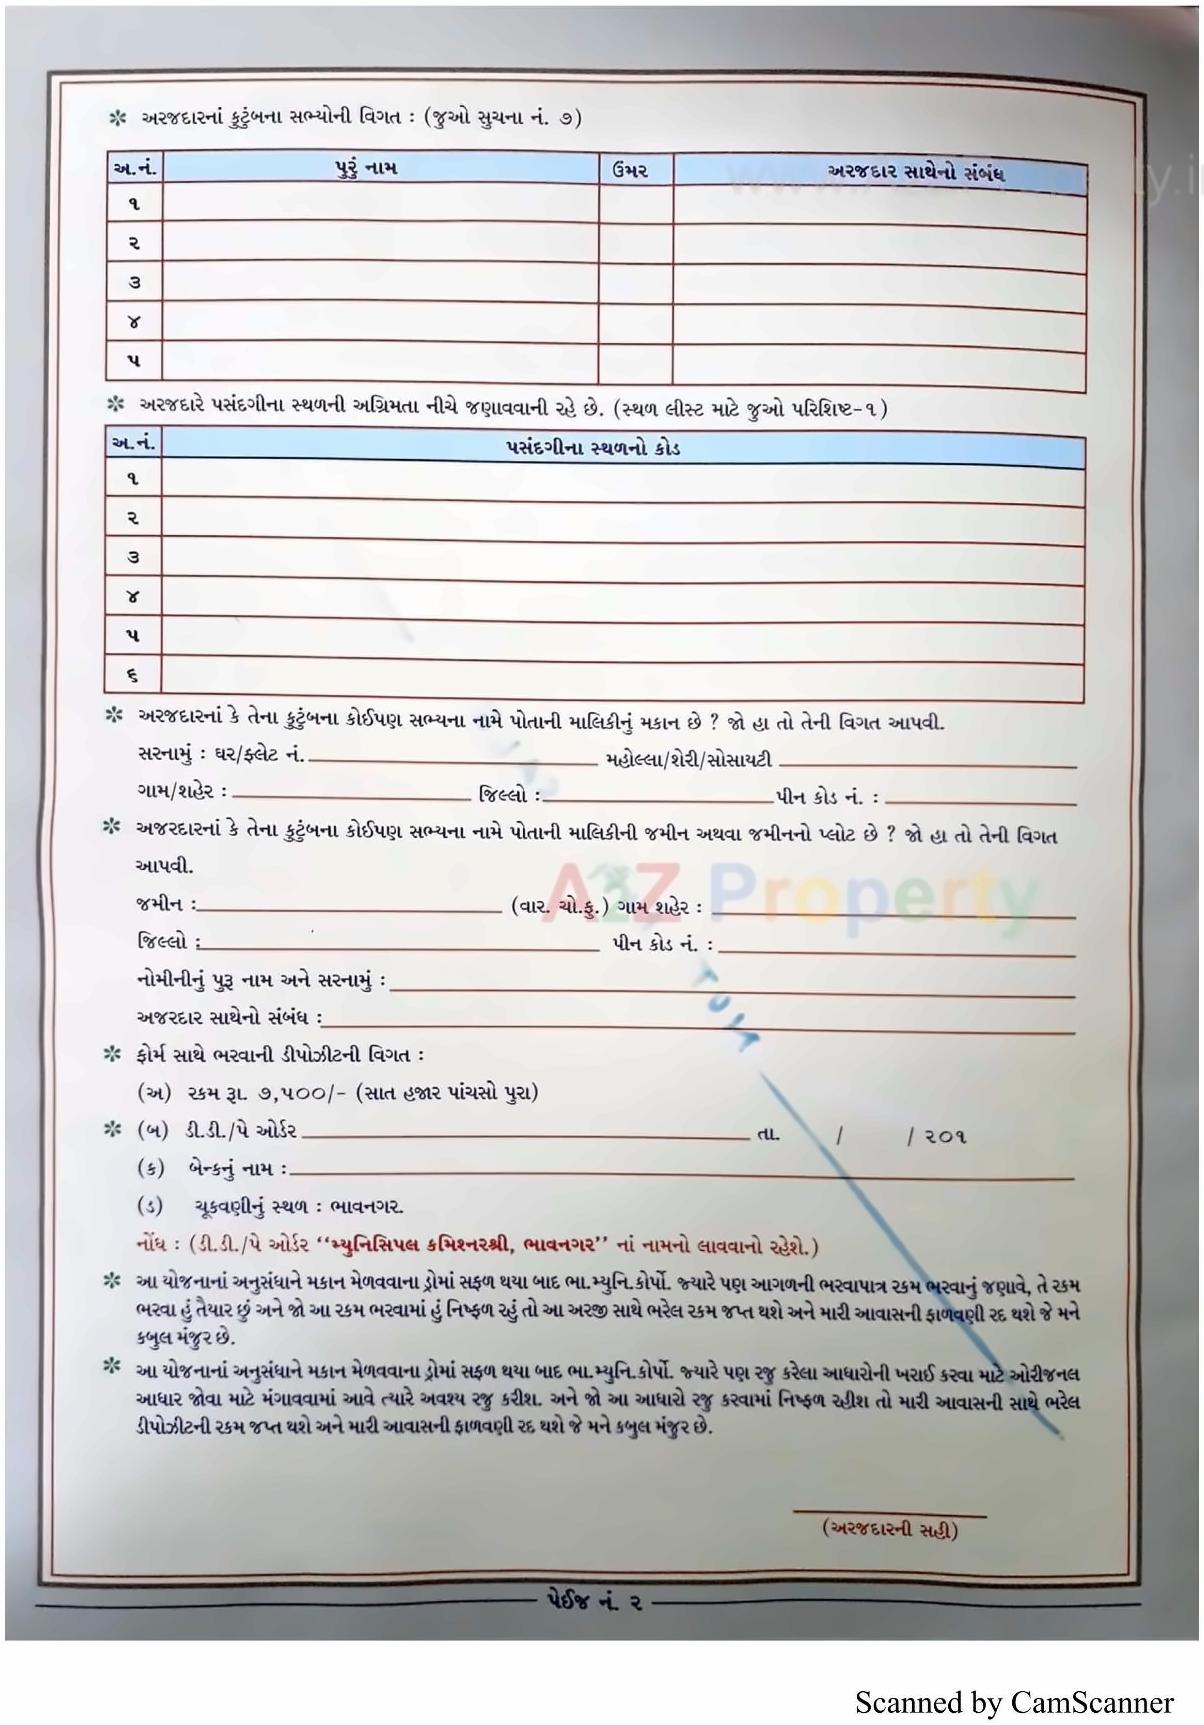 ✻ અરજદારનાં કુટુંબના સભ્યોની વિગત : (જુઓ સુચના નં. ૭)
અ.નં. પુરું નામ ઉંમર અરજદાર સાથેનો સંબંધ
૧
૨
૩
૪
૫
✻ અરજદારે પસંદગીના સ્થળની અગ્રિમતા નીચે જણાવવાની રહે છે. (સ્થળ લીસ્ટ માટે જુઓ પરિશિષ્ટ-૧)
અ.નં. પસંદગીના સ્થળનો કોડ
૧
૨
૩
૪
૫
૬
✻ અરજદારનાં કે તેના કુટુંબના કોઈપણ સભ્યના નામે પોતાની માલિકીનું મકાન છે ? જો હા તો તેની વિગત આપવી.
સરનામું : ઘર/ફ્લેટ નં. મહોલ્લા/શેરી/સોસાયટી
ગામ/શહેર : જિલ્લો : પીન કોડ નં. :
✻ અજરદારનાં કે તેના કુટુંબના કોઈપણ સભ્યના નામે પોતાની માલિકીની જમીન અથવા જમીનનો પ્લોટ છે ? જો હા તો તેની વિગત
આપવી.
A2Z Property
જમીન : (વાર. ચો.ફુ.) ગામ શહેર :
જિલ્લો : પીન કોડ નં. :
નોમીનીનું પુરૂ નામ અને સરનામું :
અજરદાર સાથેનો સંબંધ :
✻ ફોર્મ સાથે ભરવાની ડીપોઝીટની વિગત :
(અ) રકમ રૂા. ૭,૫૦૦/- (સાત હજાર પાંચસો પુરા)
✻ (બ) ડી.ડી./પે ઓર્ડર તા. / / ૨૦૧
(ક) બેન્કનું નામ :
(ડ) ચૂકવણીનું સ્થળ : ભાવનગર.
નોંધ : (ડી.ડી./પે ઓર્ડર ‘‘મ્યુનિસિપલ કમિશ્નરશ્રી, ભાવનગર’’ નાં નામનો લાવવાનો રહેશે.)
✻ આ યોજનાનાં અનુસંધાને મકાન મેળવવાના ડ્રોમાં સફળ થયા બાદ ભા.મ્યુનિ.કોર્પો. જ્યારે પણ આગળની ભરવાપાત્ર રકમ ભરવાનું જણાવે, તે રકમ
ભરવા હું તૈયાર છું અને જો આ રકમ ભરવામાં હું નિષ્ફળ રહું તો આ અરજી સાથે ભરેલ રકમ જપ્ત થશે અને મારી આવાસની ફાળવણી રદ થશે જે મને
કબુલ મંજુર છે.
✻ આ યોજનાનાં અનુસંધાને મકાન મેળવવાના ડ્રોમાં સફળ થયા બાદ ભા.મ્યુનિ.કોર્પો. જ્યારે પણ રજુ કરેલા આધારોની ખરાઈ કરવા માટે ઓરીજનલ
આધાર જોવા માટે મંગાવવામાં આવે ત્યારે અવશ્ય રજુ કરીશ. અને જો આ આધારો રજુ કરવામાં નિષ્ફળ રહીશ તો મારી આવાસની સાથે ભરેલ
ડીપોઝીટની રકમ જપ્ત થશે અને મારી આવાસની ફાળવણી રદ થશે જે મને કબુલ મંજુર છે.
(અરજદારની સહી)
પેઈજ નં. ૨
Scanned by CamScanner